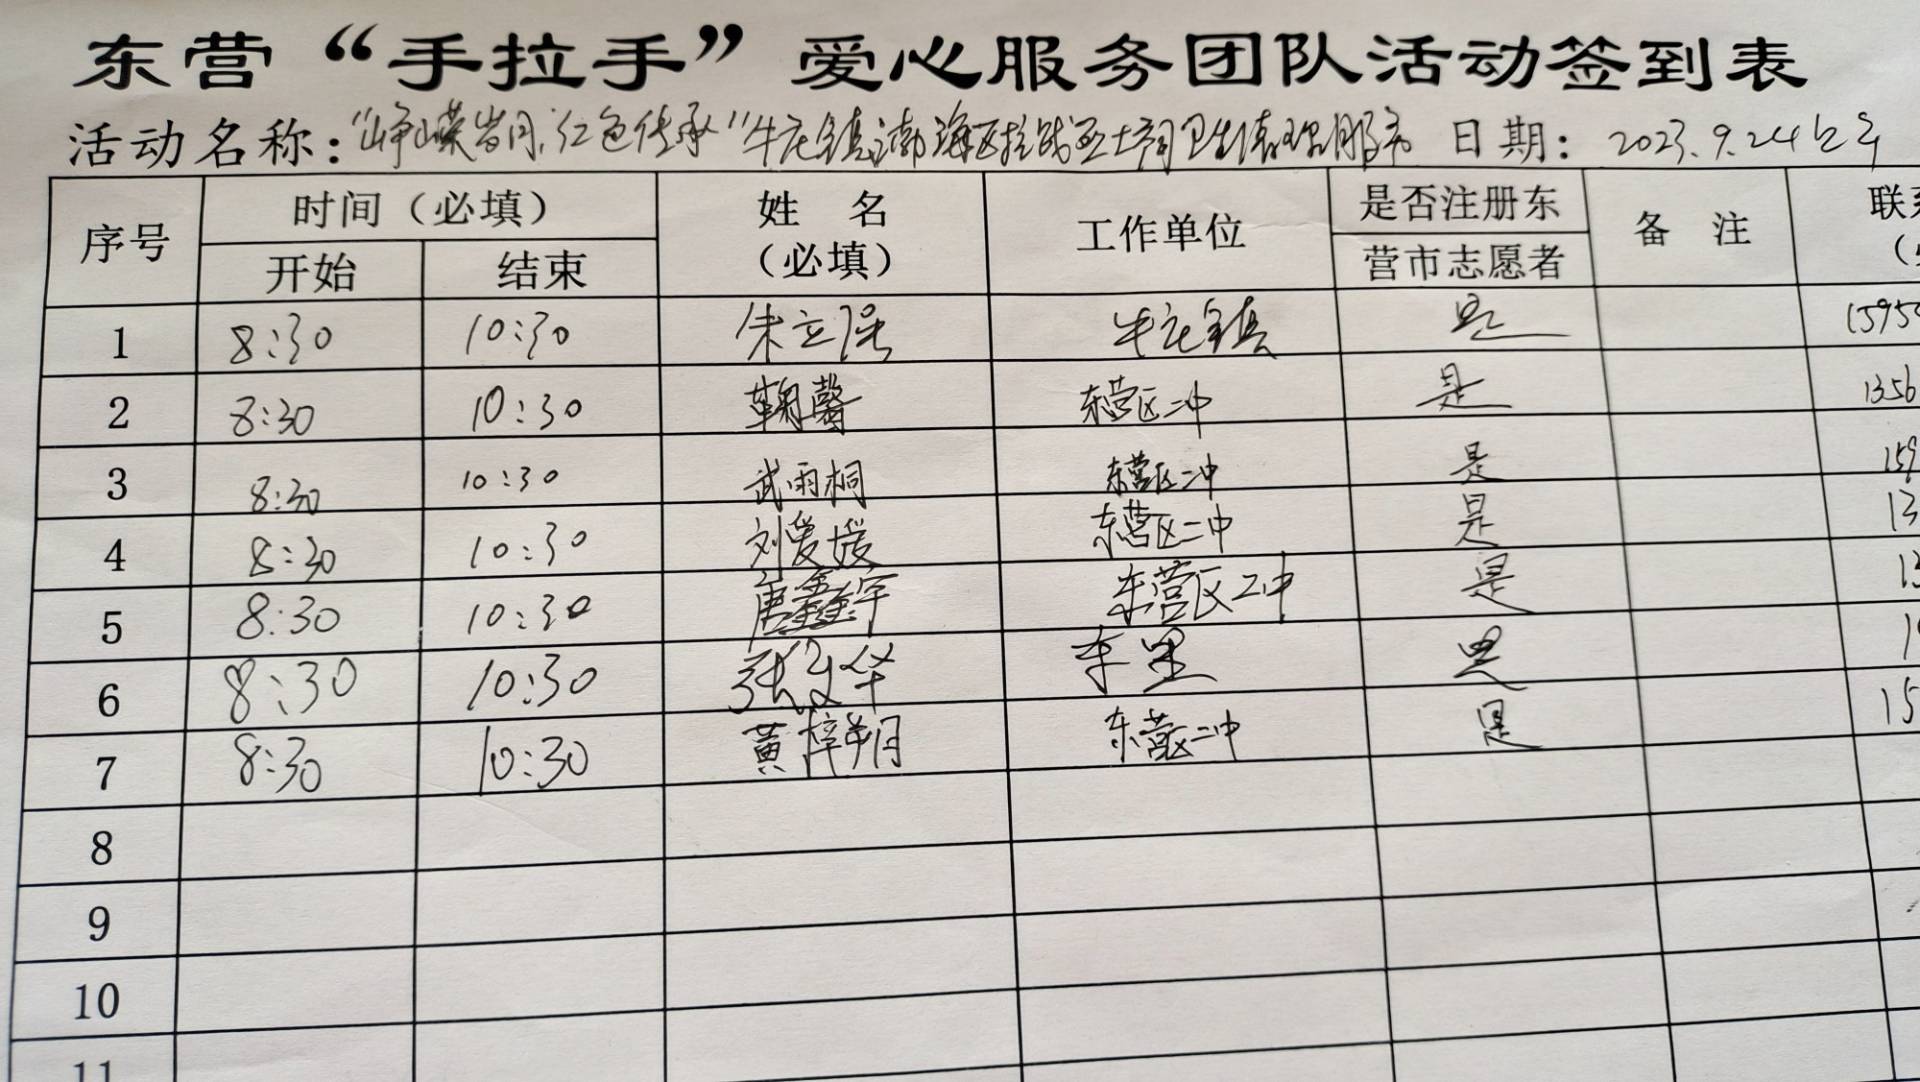 东营“手拉手”爱心服务团队活动签到表
活动名称：“峥嵘岁月，红色传承”牛庄镇渤海区抗战烈士祠卫生清理服务 日期：2023.9.24上午
序号 时间（必填） 姓 名（必填） 工作单位 是否注册东营市志愿者 备 注 联
开始 结束
1 8:30 10:30 朱立强 牛庄镇 是 1595
2 8:30 10:30 鞠馨 东营区二中 是 1356
3 8:30 10:30 武雨桐 东营区二中 是 159
4 8:30 10:30 刘爱媛 东营区二中 是 13
5 8:30 10:30 唐鑫宇 东营区二中 是 13
6 8:30 10:30 张文华 是 1
7 8:30 10:30 黄梓玥 东营区二中 是 15
8
9
10
11